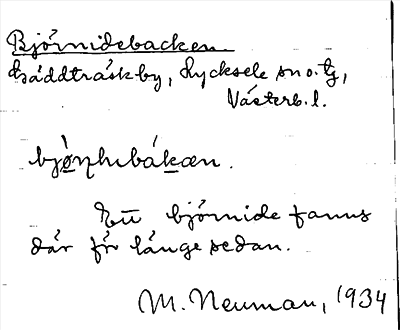 Björnidebacken
Gäddträsk by, Lycksele sn o. tg,
Västerb. l.
bjø̀ṇhıbákæn.
Ett björnide fanns
där för länge sedan.
M. Neuman, 1934